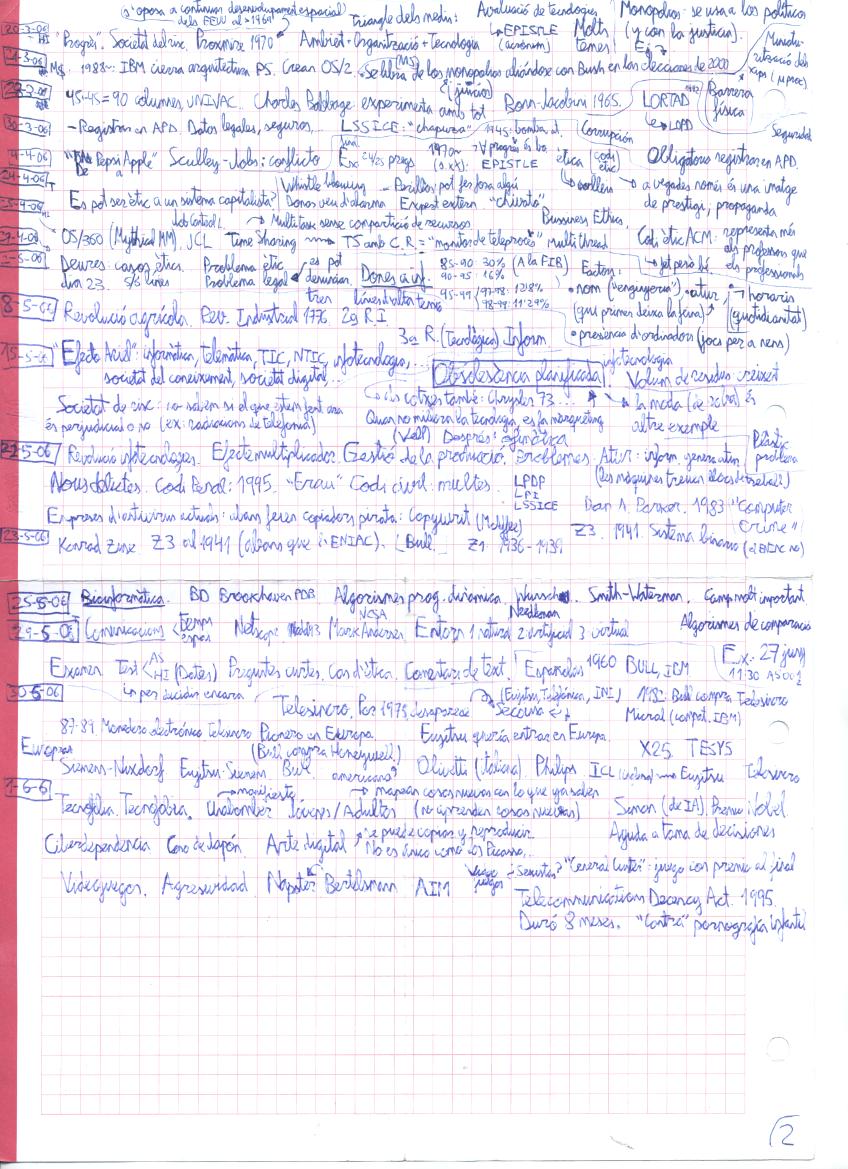 s'oposa a continuar desenvolupament espacial
dels EEUU al >1969
Triangle dels medis:
Avaluació de tecnologies
Monopolios: se usa a los políticos
20-3-06
HI
"Progrés". Societat del risc. Proxmire 1970
Ambient + Organització + Tecnologia
EPISTLE
(acrònim)
Molts
temes!
(y con la justicia).
Ej
M$. 1988~ IBM cierra arquitectura PS. Crean OS/2.
Se libra (MS) de los monopolios aliándose con Bush en las elecciones de 2000
(juicio)
45+45=90 columnes, UNIVAC. Charles Babbage experimenta amb tot
Bohm-Jacobini 1965.
LORTAD
LOPD
Barrera
física
30-3-06
- Registrar en APD. Datos legales, seguros...
LSSICE: "chapuza"
1945: bomba at.
Corrupción
Seguridad
4-4-06
Pepsi Apple" Sculley-Jobs: conflicto
EPISTLE
ètica
codi
ètic
Obligatorio registrar en APD.
24-4-06
T
Es pot ser ètic a un sistema capitalista?
Whistle blowing
Donar veu d'alarma
Perillós pot fer fora algú
Expert extern "chivato"
a vegades només és una imatge
de prestigi, propaganda
Bussiness Ethics.
OS/360 (Mythical MM). JCL
Job Control L
Multitasc sense compartició de recursos
Time Sharing
TS amb C.R = "monitor de teleprocés" Multithread
Codi ètic ACM: representa més
als professors que
als professionals
2-5-06
Deures: casos ètics.
dia 23. 5/6 línies
Problema ètic
Problema legal
es pot
denunciar.
Dones a inf.
85-90 30% (A la FIB)
90-95 16%
95-99
97-98: 12'8%
98-99: 11'29%
Factors:
• nom ("enginyeria") • atur,
• horaris
(qui primer deixa la feina)
(quotidianitat)
• presència d'ordinadors (jocs per a nens)
8-5-06
Revolució agrícola. Rev. Industrial 1776. 2a R.I
3a R. (Tecnològica) Inform
15-5-06
"Efecto Ariel": informàtica, telemàtica, TIC, NTIC, infotecnologia,...
societat del coneixement, societat digital,...
infotecnologia
Obsolescència planificada
Volum de residus creixent
els cotxes també: Chrysler 73...
la moda (de roba) és
altre exemple
Societat de risc: no sabem si el que estem fent ara
és perjudicial o no (ex: radiacions de telefonia)
Quan no millora la tecnologia, es fa marqueting
(Vell) Després: genètica
22-5-06
Revolució infotecnologies. Efecte multiplicador. Gestió de la producció. Problemes. Atur: inform. genera atur
(les màquines treuen llocs de treball)
Plàstic
problema
Nous delictes. Codi Penal: 1995. "Erau" Codi civil: multes.
LPDP
LPI
LSSICE
Donn A. Parker. 1983 "Computer
Crime"
Empreses d'antivirus actuals: abans feien copiadors pirata: Copywrit (McAffee)
23-5-06
Konrad Zuse. Z3 al 1941 (abans que l'ENIAC). (Bull.
Z1 1936-1939
Z3. 1941. Sistema binario (el ENIAC no)
25-5-06
Bioinformàtica. BD Brookhaven PDB Algorismes prog. dinàmica. Wunsch
Needleman
Smith-Waterman. Camp molt important
Algorismes de comparació
29-5-06
Comunicacions
temps
espai
Netscape
NCSA
Mark Andersen
Entorn 1 natural 2 artificial 3 virtual
Examen Test
AS
HI
(Dates) Preguntes curtes. Cas d'ètica. Comentari de text.
Españolas 1960 BULL, IBM
Ex: 27 juny
11:30 A5002
30-5-06
per decidir encara
Telesincro. Por 1975 desaparece
(Fujitsu, Telefónica, INI)
Secoinsa
1982: Bull compra Telesincro
Micral (compat. IBM)
87-89 Monedero electrónico Telesincro Pionero en Europa.
(Bull compra Honeywell)
Fujitsu quería entrar en Europa.
X25. TESYS
Europeas
Siemens-Nixdorf Fujitsu-Siemens Bull
americano?
Olivetti (italiana). Philips. ICL
Fujitsu Telesincro
1-6-6
manifiesto
mapean cosas nuevas en lo que ya saben
Tecnofilia. Tecnofobia. Unabomber Jóvenes/Adultos (no aprenden cosas nuevas)
Simon (de IA). Premio Nobel.
Ayuda a toma de decisiones
Ciberdependencia Caso de Japón. Arte digital
se puede copiar y reproducir.
No es único como los Picasso...
Videojuegos. Agresividad Napster Bertelsmann AIM
Sexistas? "General Custer": juego con premio al final
Telecommunications Decency Act. 1995.
Duró 8 meses. "Contra" pornografía infantil
2